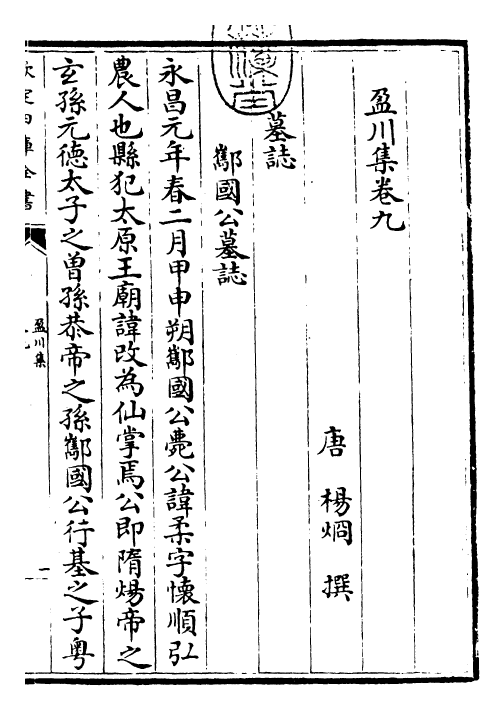 盈川集卷九
唐 楊烱 撰
墓誌
酅國公墓誌
永昌元年春二月甲申朔酅國公薨公諱柔字懷順弘
農人也縣犯太原王廟諱改為仙掌焉公即隋煬帝之
玄孫元德太子之曾孫恭帝之孫酅國公行基之子粤
欽定四庫全書
盈川集
一